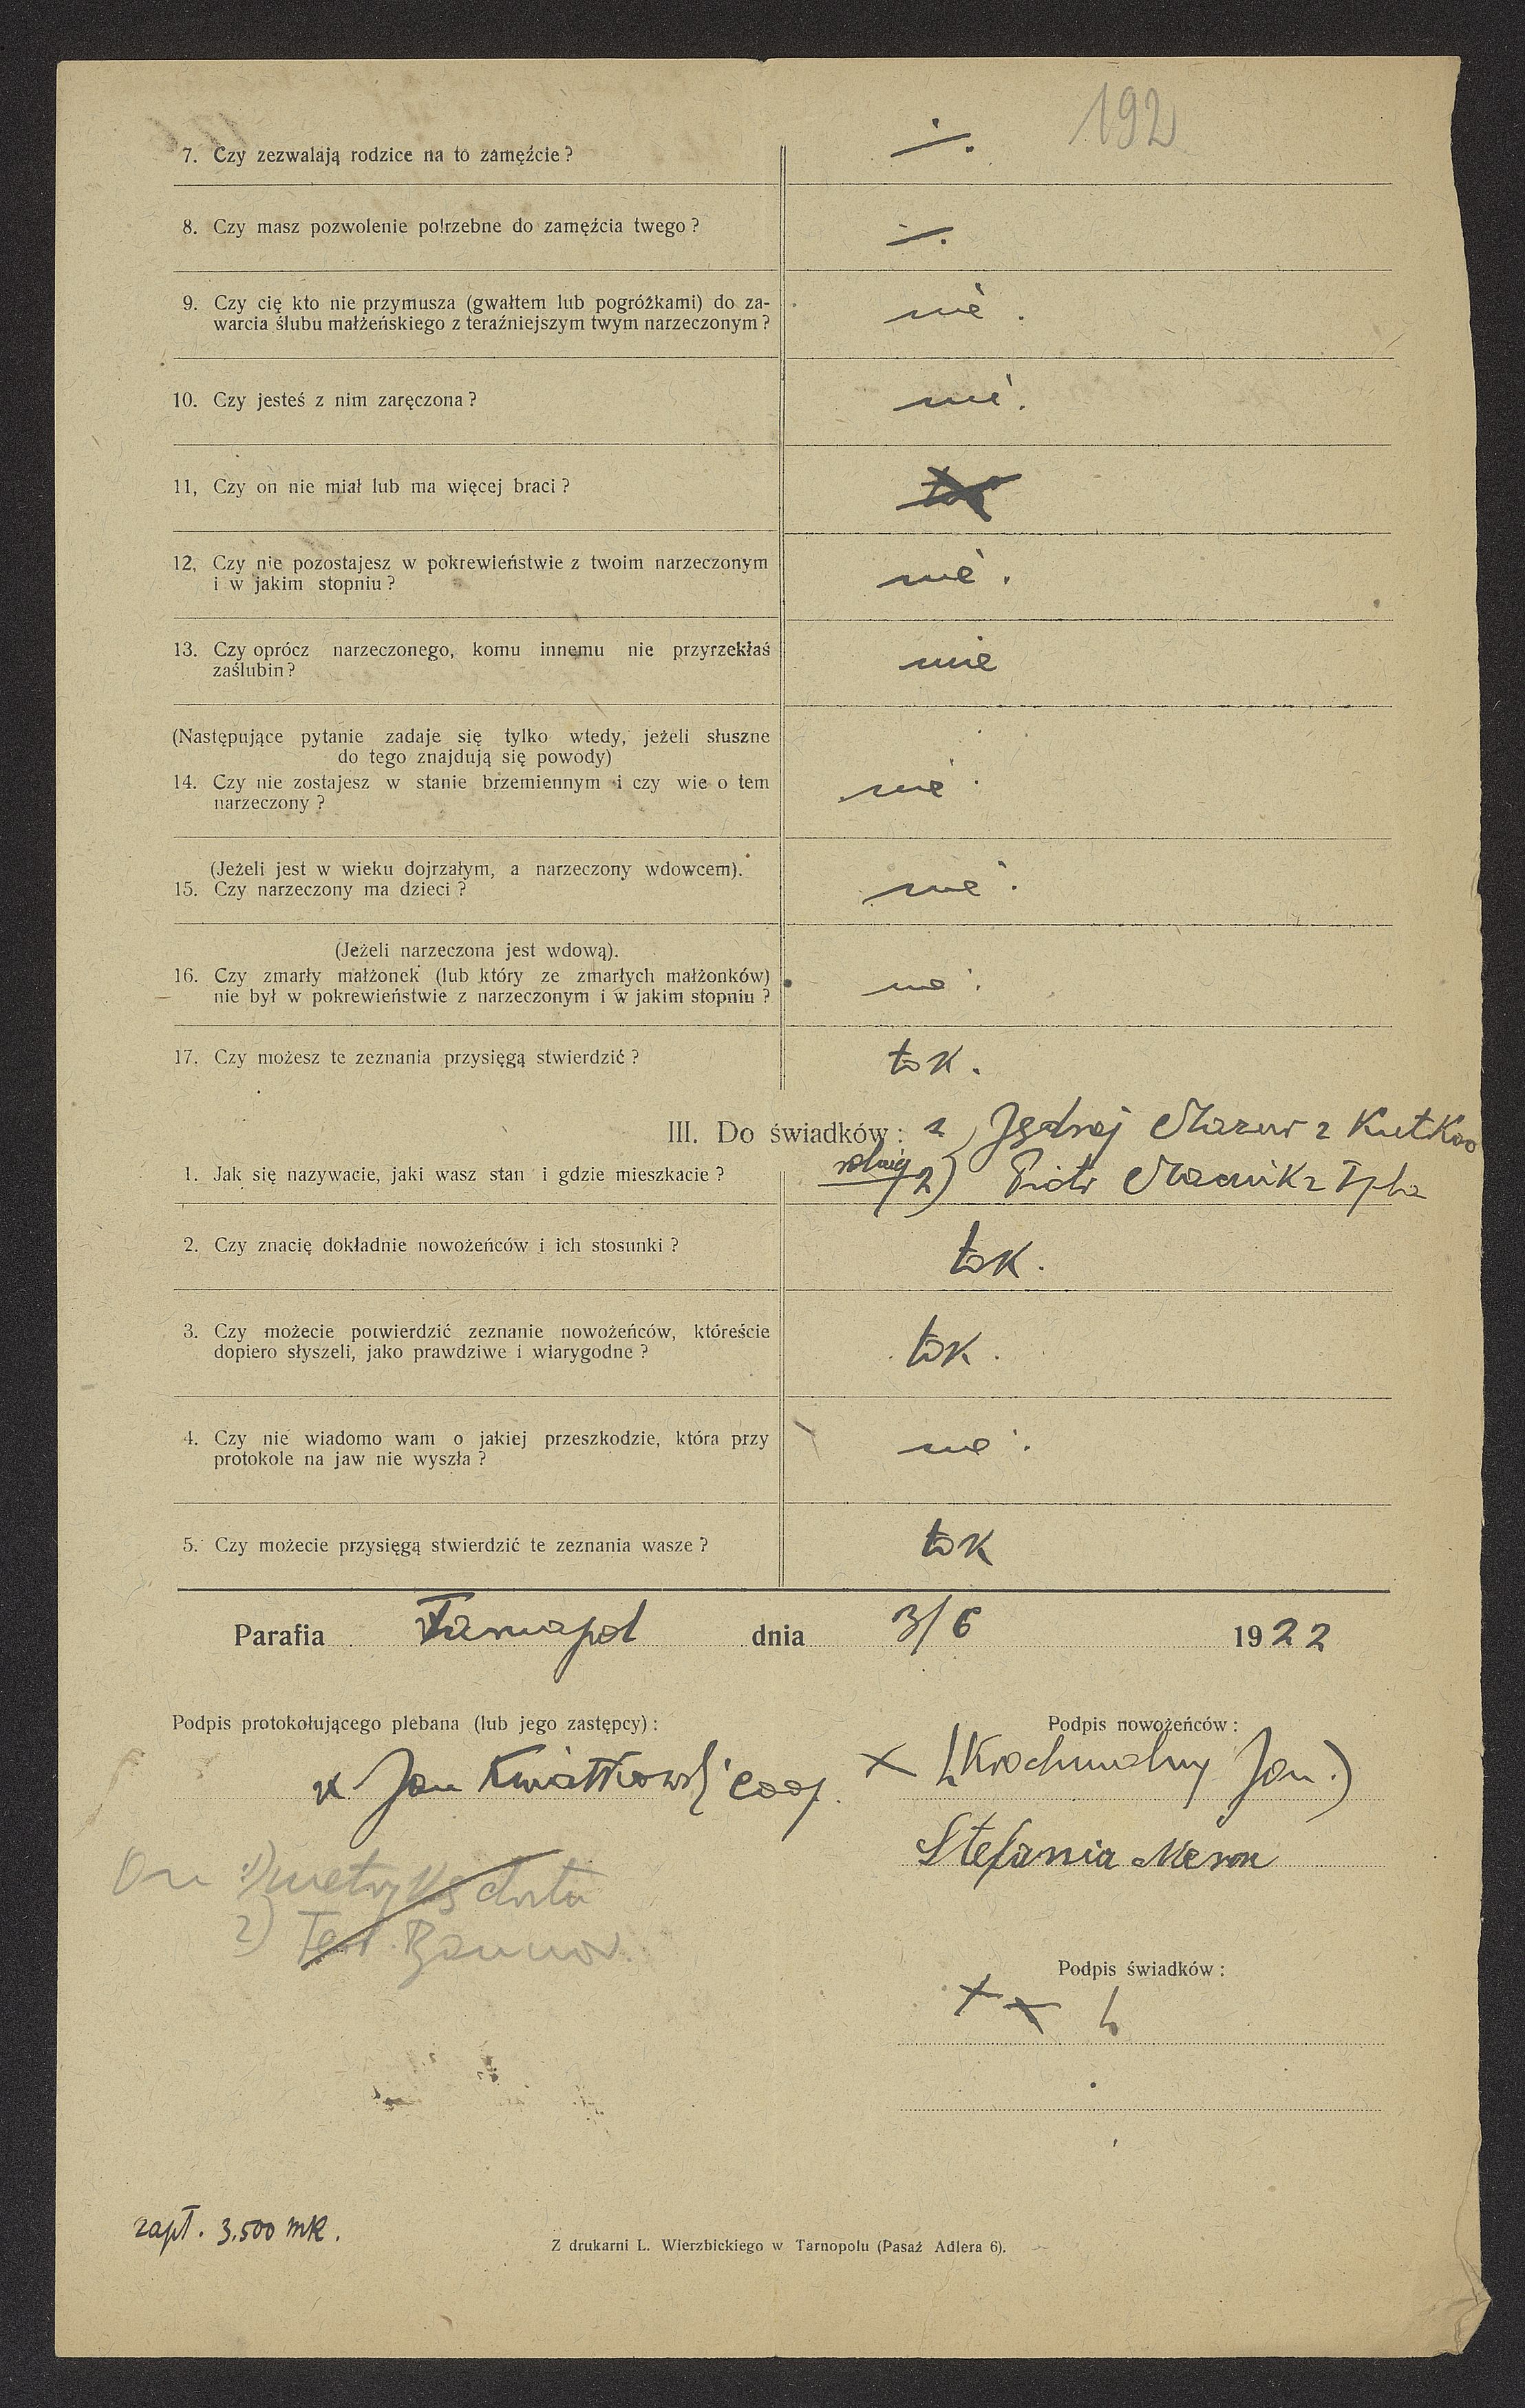 192
7. Czy zezwalają rodzice na to zamęźcie?
8. Czy masz pozwolenie potrzebne do zamęźcia twego?
9. Czy cię kto nie przymusza (gwałtem lub pogróżkami) do za-
warcia ślubu małżeńskiego z teraźniejszym twym narzeczonym?
nie.
10. Czy jesteś z nim zaręczona?
nie.
11, Czy on nie miał lub ma więcej braci?
tak
12, Czy nie pozostajesz w pokrewieństwie z twoim narzeczonym
i w jakim stopniu?
nie.
13. Czy oprócz narzeczonego, komu innemu nie przyrzekłaś
zaślubin?
nie
(Następujące pytanie zadaje się tylko wtedy, jeżeli słuszne
do tego znajdują się powody)
14. Czy nie zostajesz w stanie brzemiennym i czy wie o tem
narzeczony?
nie
(Jeżeli jest w wieku dojrzałym, a narzeczony wdowcem).
15. Czy narzeczony ma dzieci?
nie.
(Jeżeli narzeczona jest wdową).
16. Czy zmarły małżonek (lub który ze zmarłych małżonków)
nie był w pokrewieństwie z narzeczonym i w jakim stopniu?
nie.
17. Czy możesz te zeznania przysięgą stwierdzić?
tak.
III. Do świadków: Jędrzej Mazur z Kutkow
1. Jak się nazywacie, jaki wasz stan i gdzie mieszkacie?
2) Piotr z Tpla
2. Czy znacię dokładnie nowożeńców i ich stosunki?
tak.
3. Czy możecie potwierdzić zeznanie nowożeńców, któreście
dopiero słyszeli, jako prawdziwe i wiarygodne?
tak.
4. Czy nie wiadomo wam o jakiej przeszkodzie, która przy
protokole na jaw nie wyszła?
nie.
5. Czy możecie przysięgą stwierdzić te zeznania wasze?
tak
Parafia Tarnopol dnia 3/6 1922
Podpis protokołującego plebana (lub jego zastępcy):
Podpis nowożeńców:
x Jan Kwiatkowski coop.
x (Krochmalny Jan.)
Stefania Meron
On 1) metrykę chrztu
2)
Podpis świadków:
x x
zapł. 3.500 mk.
Z drukarni L. Wierzbickiego w Tarnopolu (Pasaż Adlera 6).